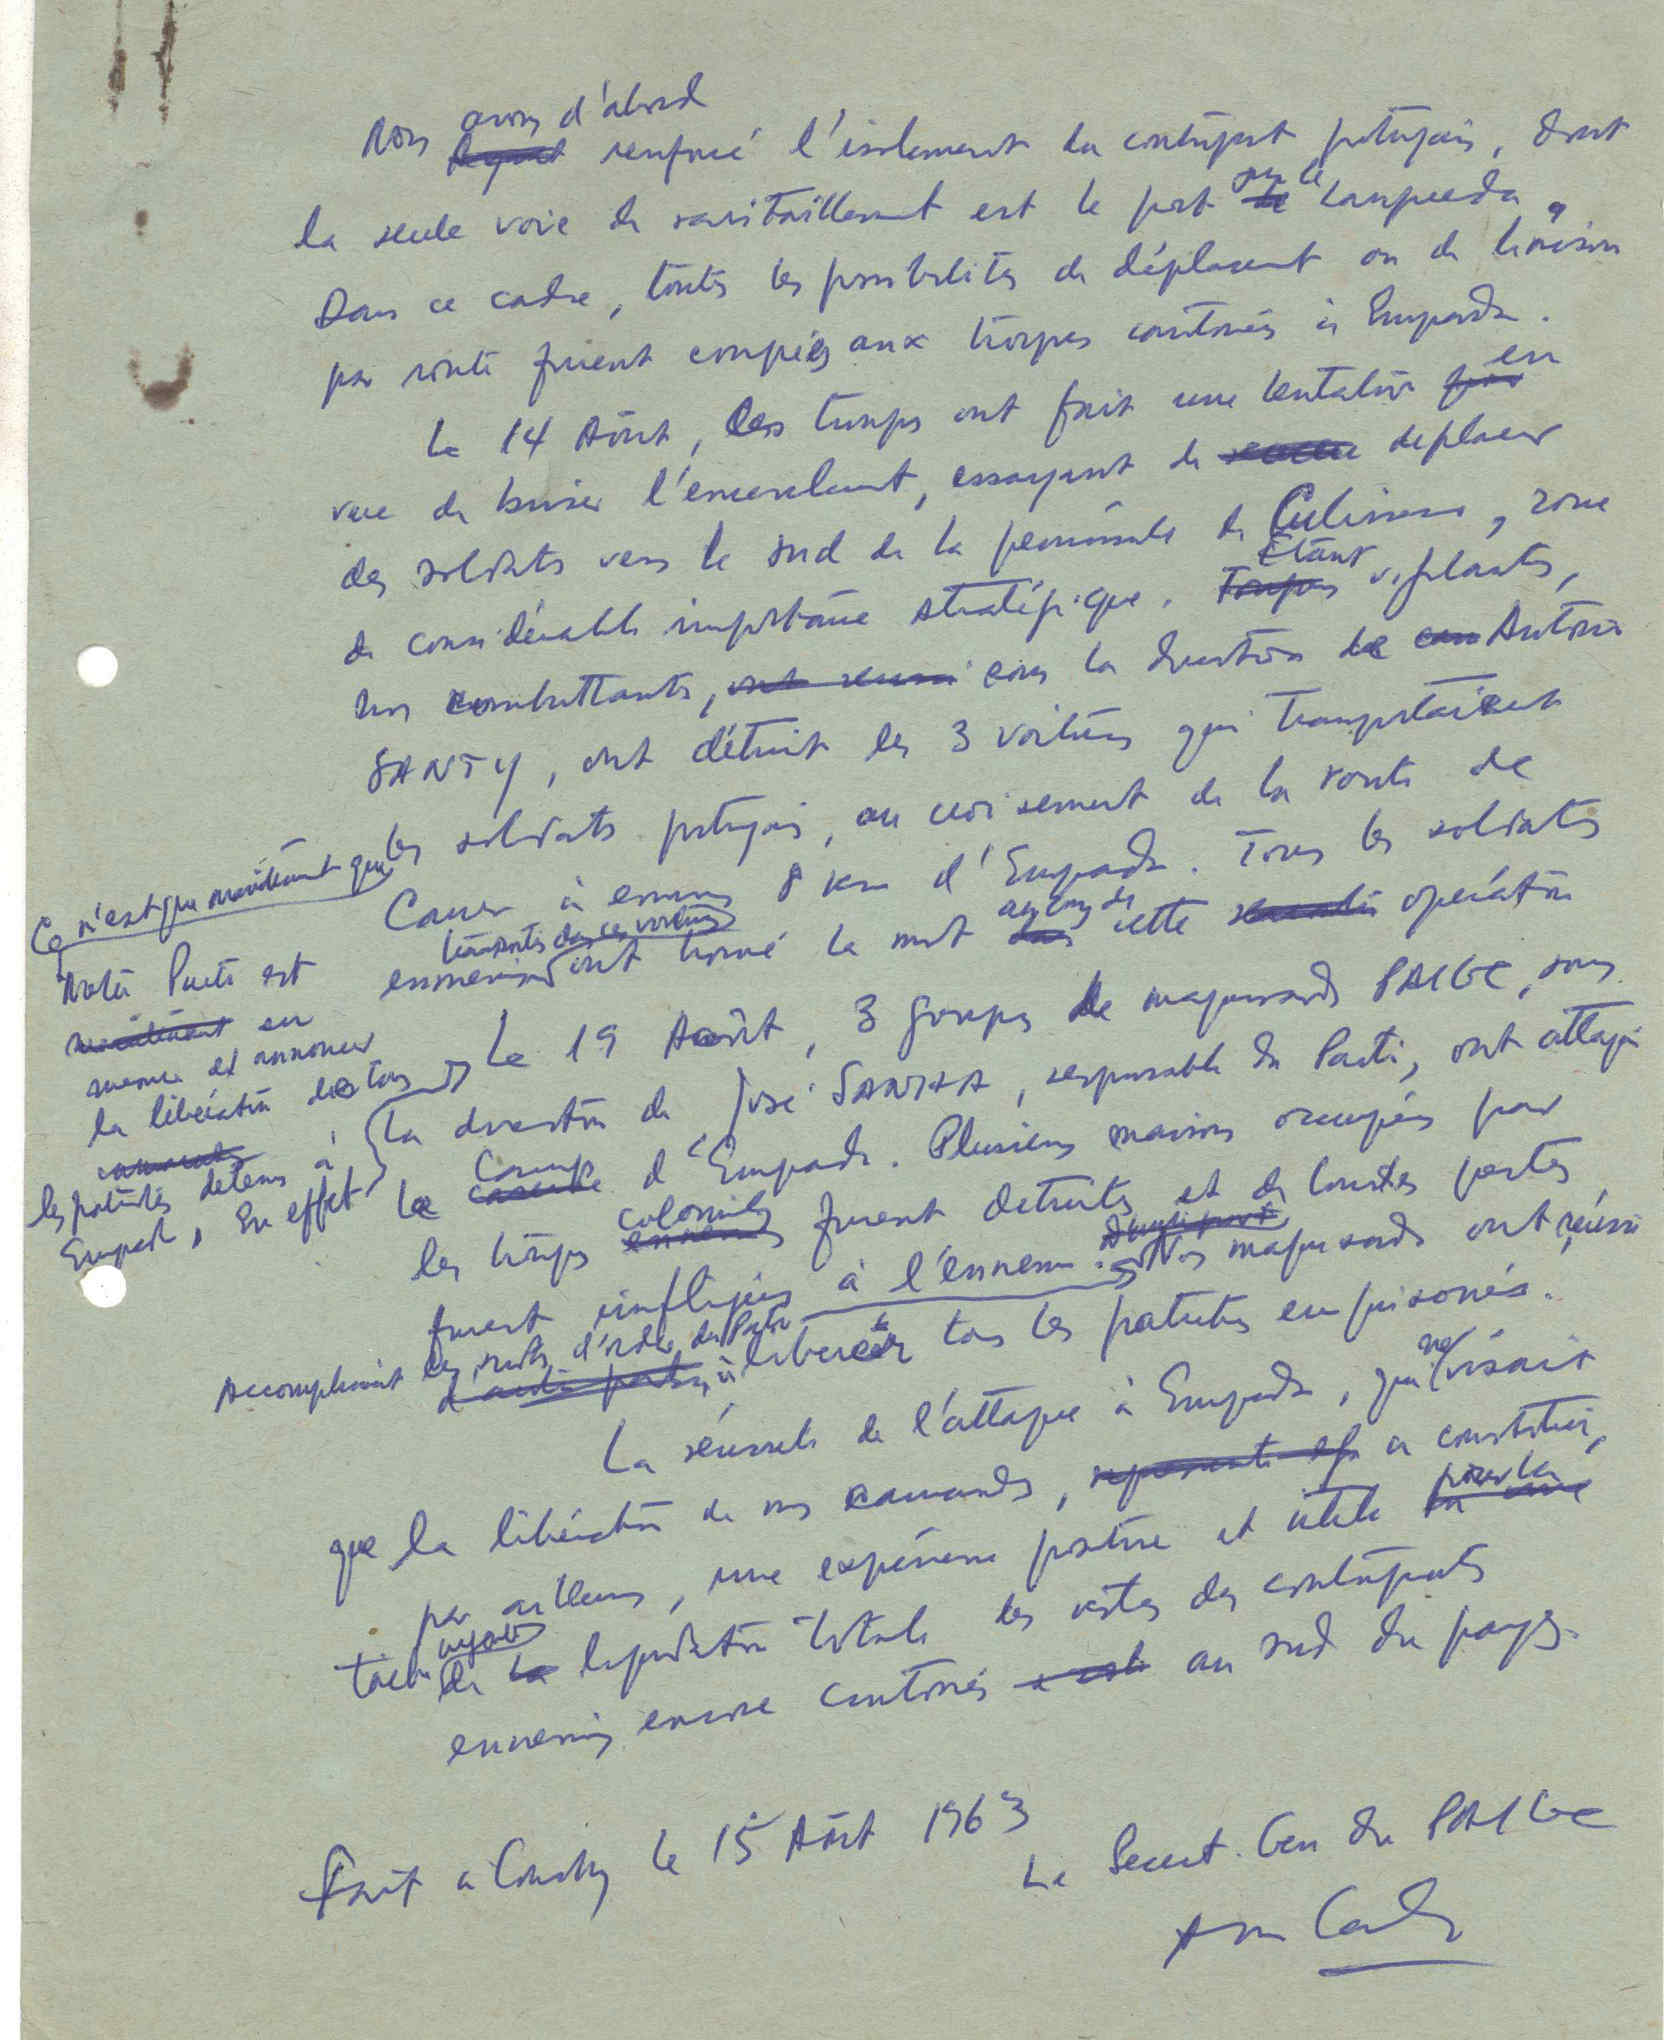 Nous avons d'abord
renforcé l'isolement du contingent portugais, dont
la seule voie de ravitaillement est le port sur le
Dans ce cadre, toutes les possibilités de déplacement ou de liaison
par route furent coupées aux troupes cantonées à Empada.
Le 14 Août, ces troupes ont fait une tentative en
vue de briser l'encerclement, essayant de deplacer
des soldats vers le sud de la peninsule de Cubisseco, zone
de considérable importance stratégique. Etant vigilants,
nos combattants, sous la direction de Antonio
SANTY, ont détruit les 3 voitures qui transportaient
les soldats portugais, au croisement de la route de
à environ 8 km d'Empada. Tous les soldats
transportés dans ces voitures
ennemis ont trouvé la mort au cours de cette opération
Ce n'est que maintenant que
Notre Parti est
en
mesure d'annoncer
la libération de tous
les patriotes détenus à
Empada, En effet
Le 19 Août, 3 groupes de maquisards PAIGC, sous
la direction de José SANHA, responsable du Parti, ont attaqué
le Camp d'Empada. Plusieurs maisons occupées par
les troupes coloniales furent detruites et de lourdes pertes
furent infligées à l'ennemi. Nos maquisards ont réussi
Accomplissant les mots d'ordre du Parti
à libérer tous les patriotes emprisonnés.
La réussite de l'attaque à Empada, qui ne visait
que la libération de nos camarades, a constitué,
par ailleurs, une expérience positive et utile pour la
tâche
de liquidation totale des restes des contingents
ennemis encore cantonnés au sud du pays.
Fait a Conakry le 15 Août 1963
Le Secret. Gen du PAIGC